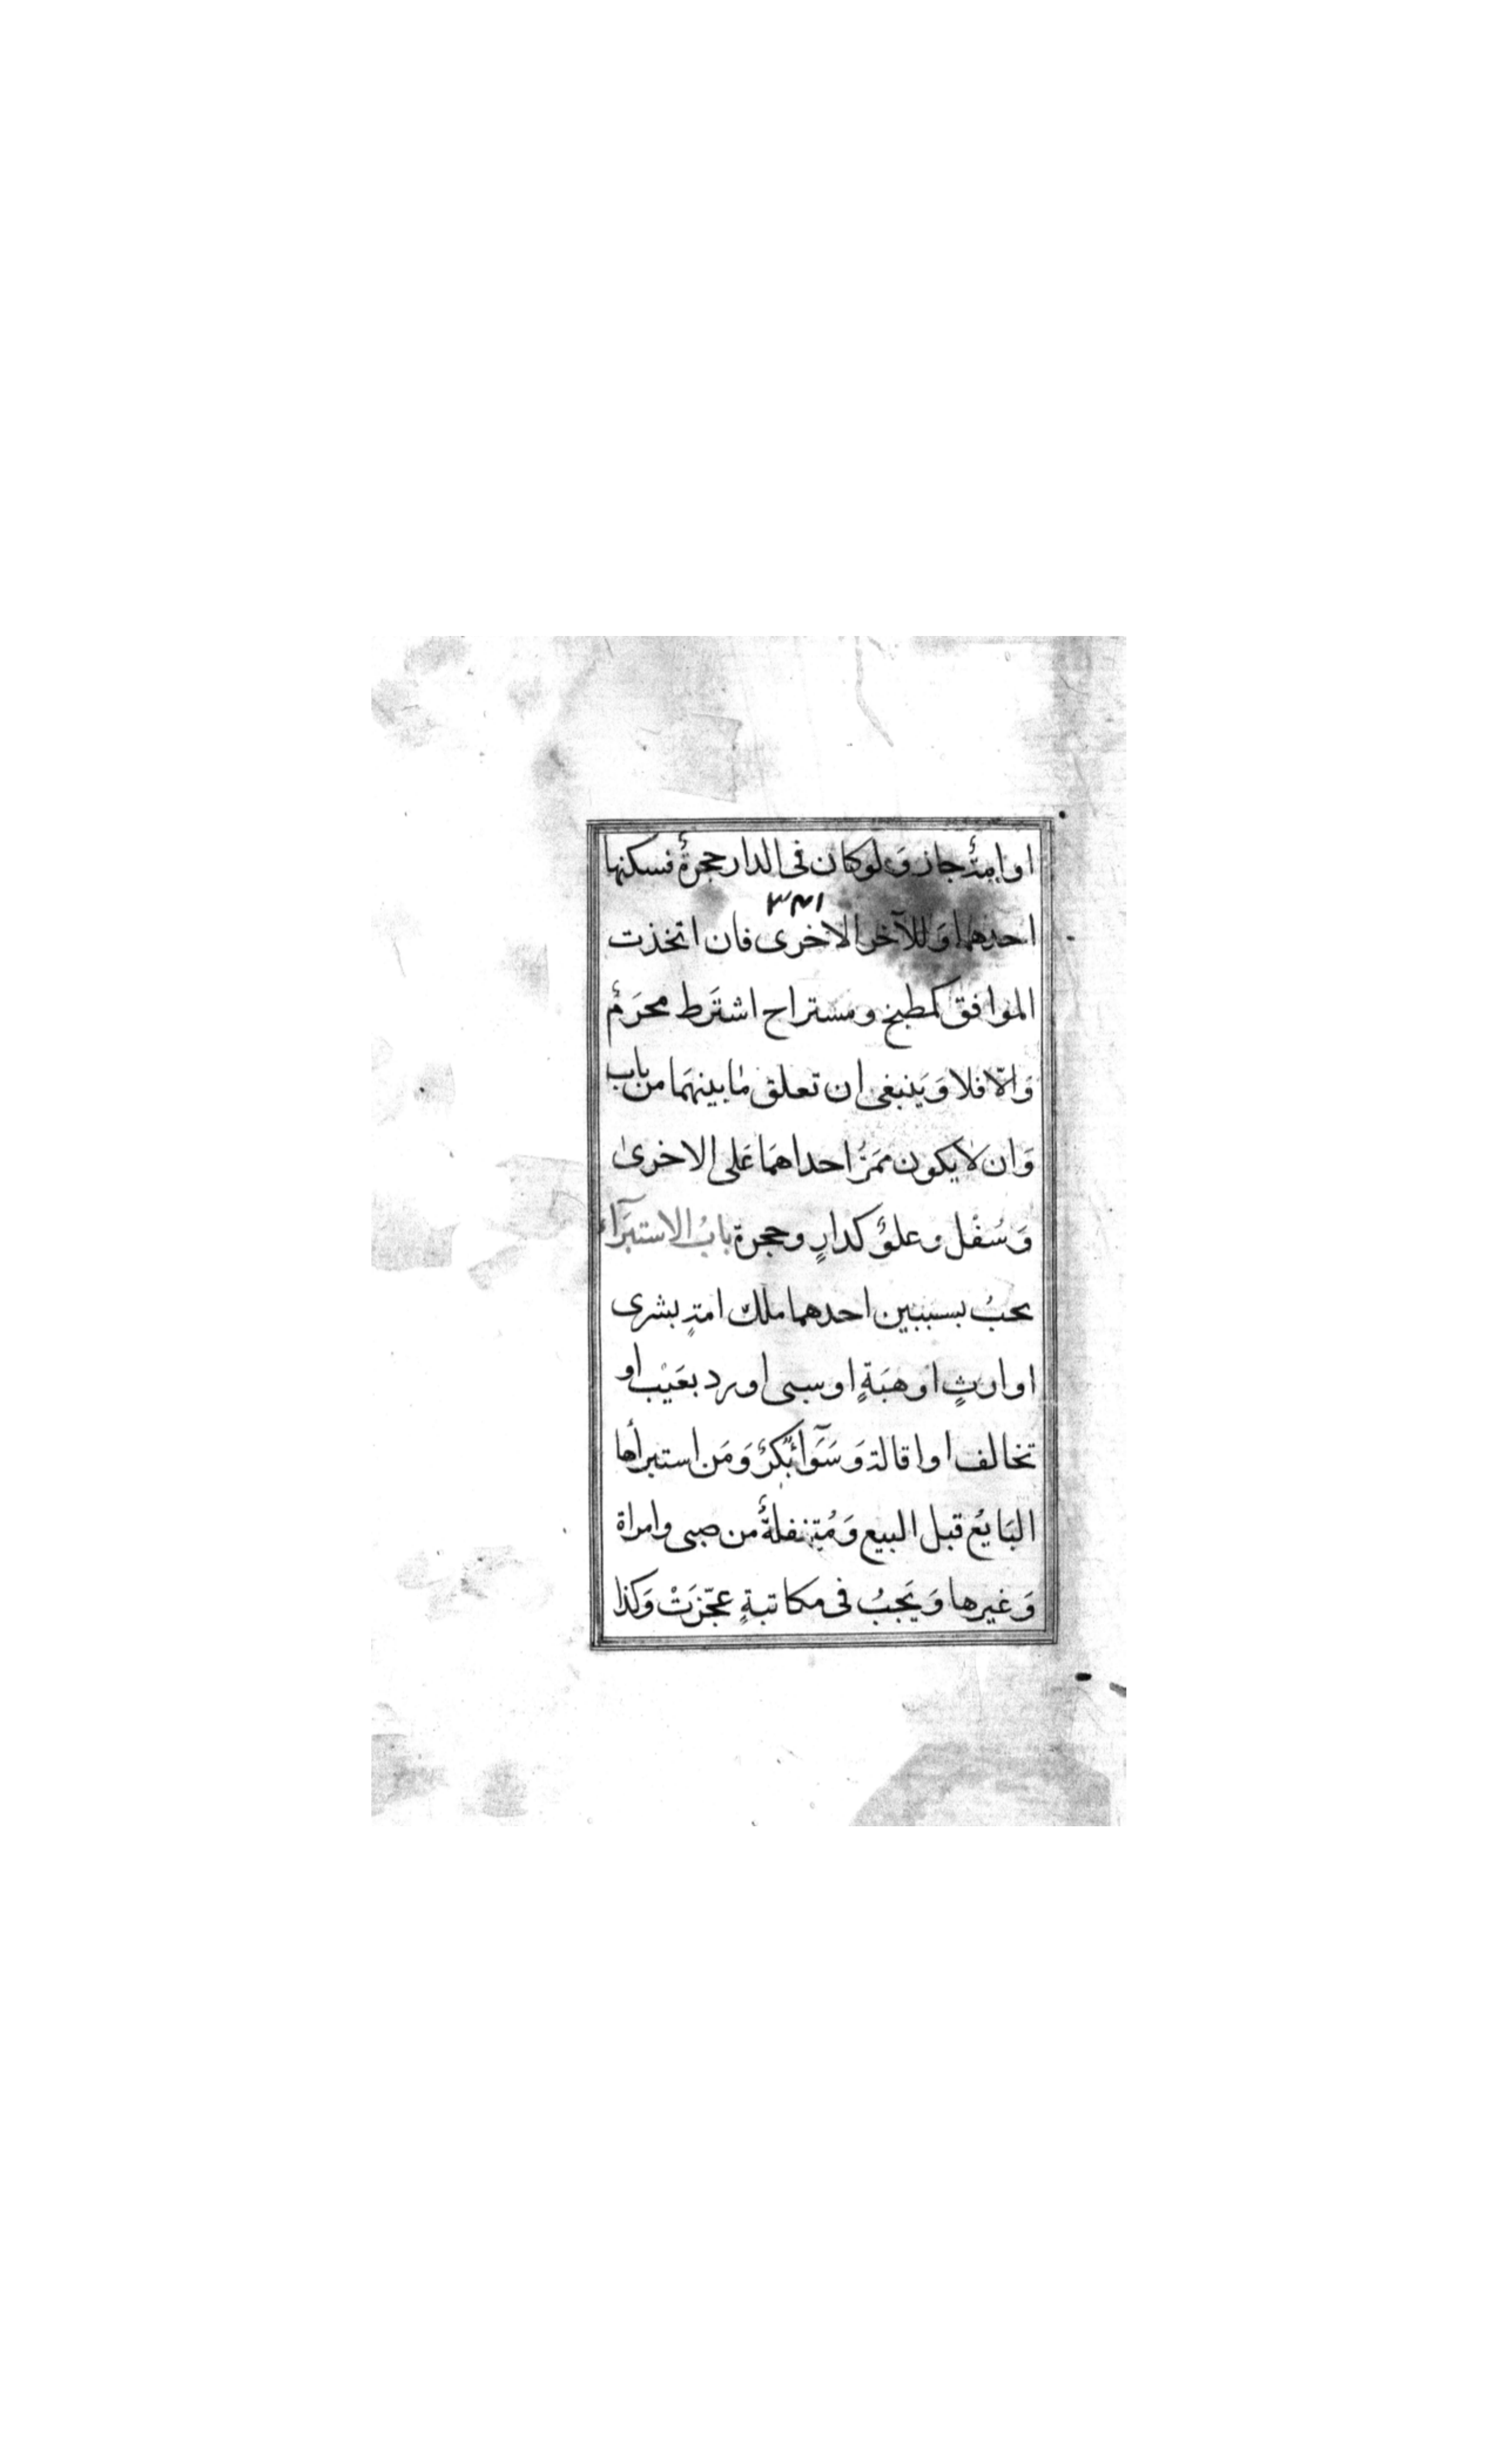 او امةٌ جاز وَ لو كان فى الدار حجرةٌ فسكنها
احدهما وَللآخر الاخرى فان اتخذت
الموافق كمطبخ ومستراح اشتَرط محرَمٌ
وَالّا فلا وَيَنبغى ان تعلق مابينهمَا من باب
وَان لايكون ممَرُّ احداهمَا عَلى الاخرىٰ
وَسُفْل وعلوٌ كدارٍ وحجرة بابُ الاستبرَآء
يحبُ بسببين احدهما ملك امةٍ بشرى
او ارثٍ او هبَةٍ او سبى او رد بعَيْب او
تخالف او اقالة وَسَوَآئبكرٌ وَمَن استبرأها
البَايعُ قبل البيع وَمُتنفلةٌ من صبى وامراة
وَغيرها وَيَجبُ فى مكاتبةٍ عجّزَتْ وَكذا